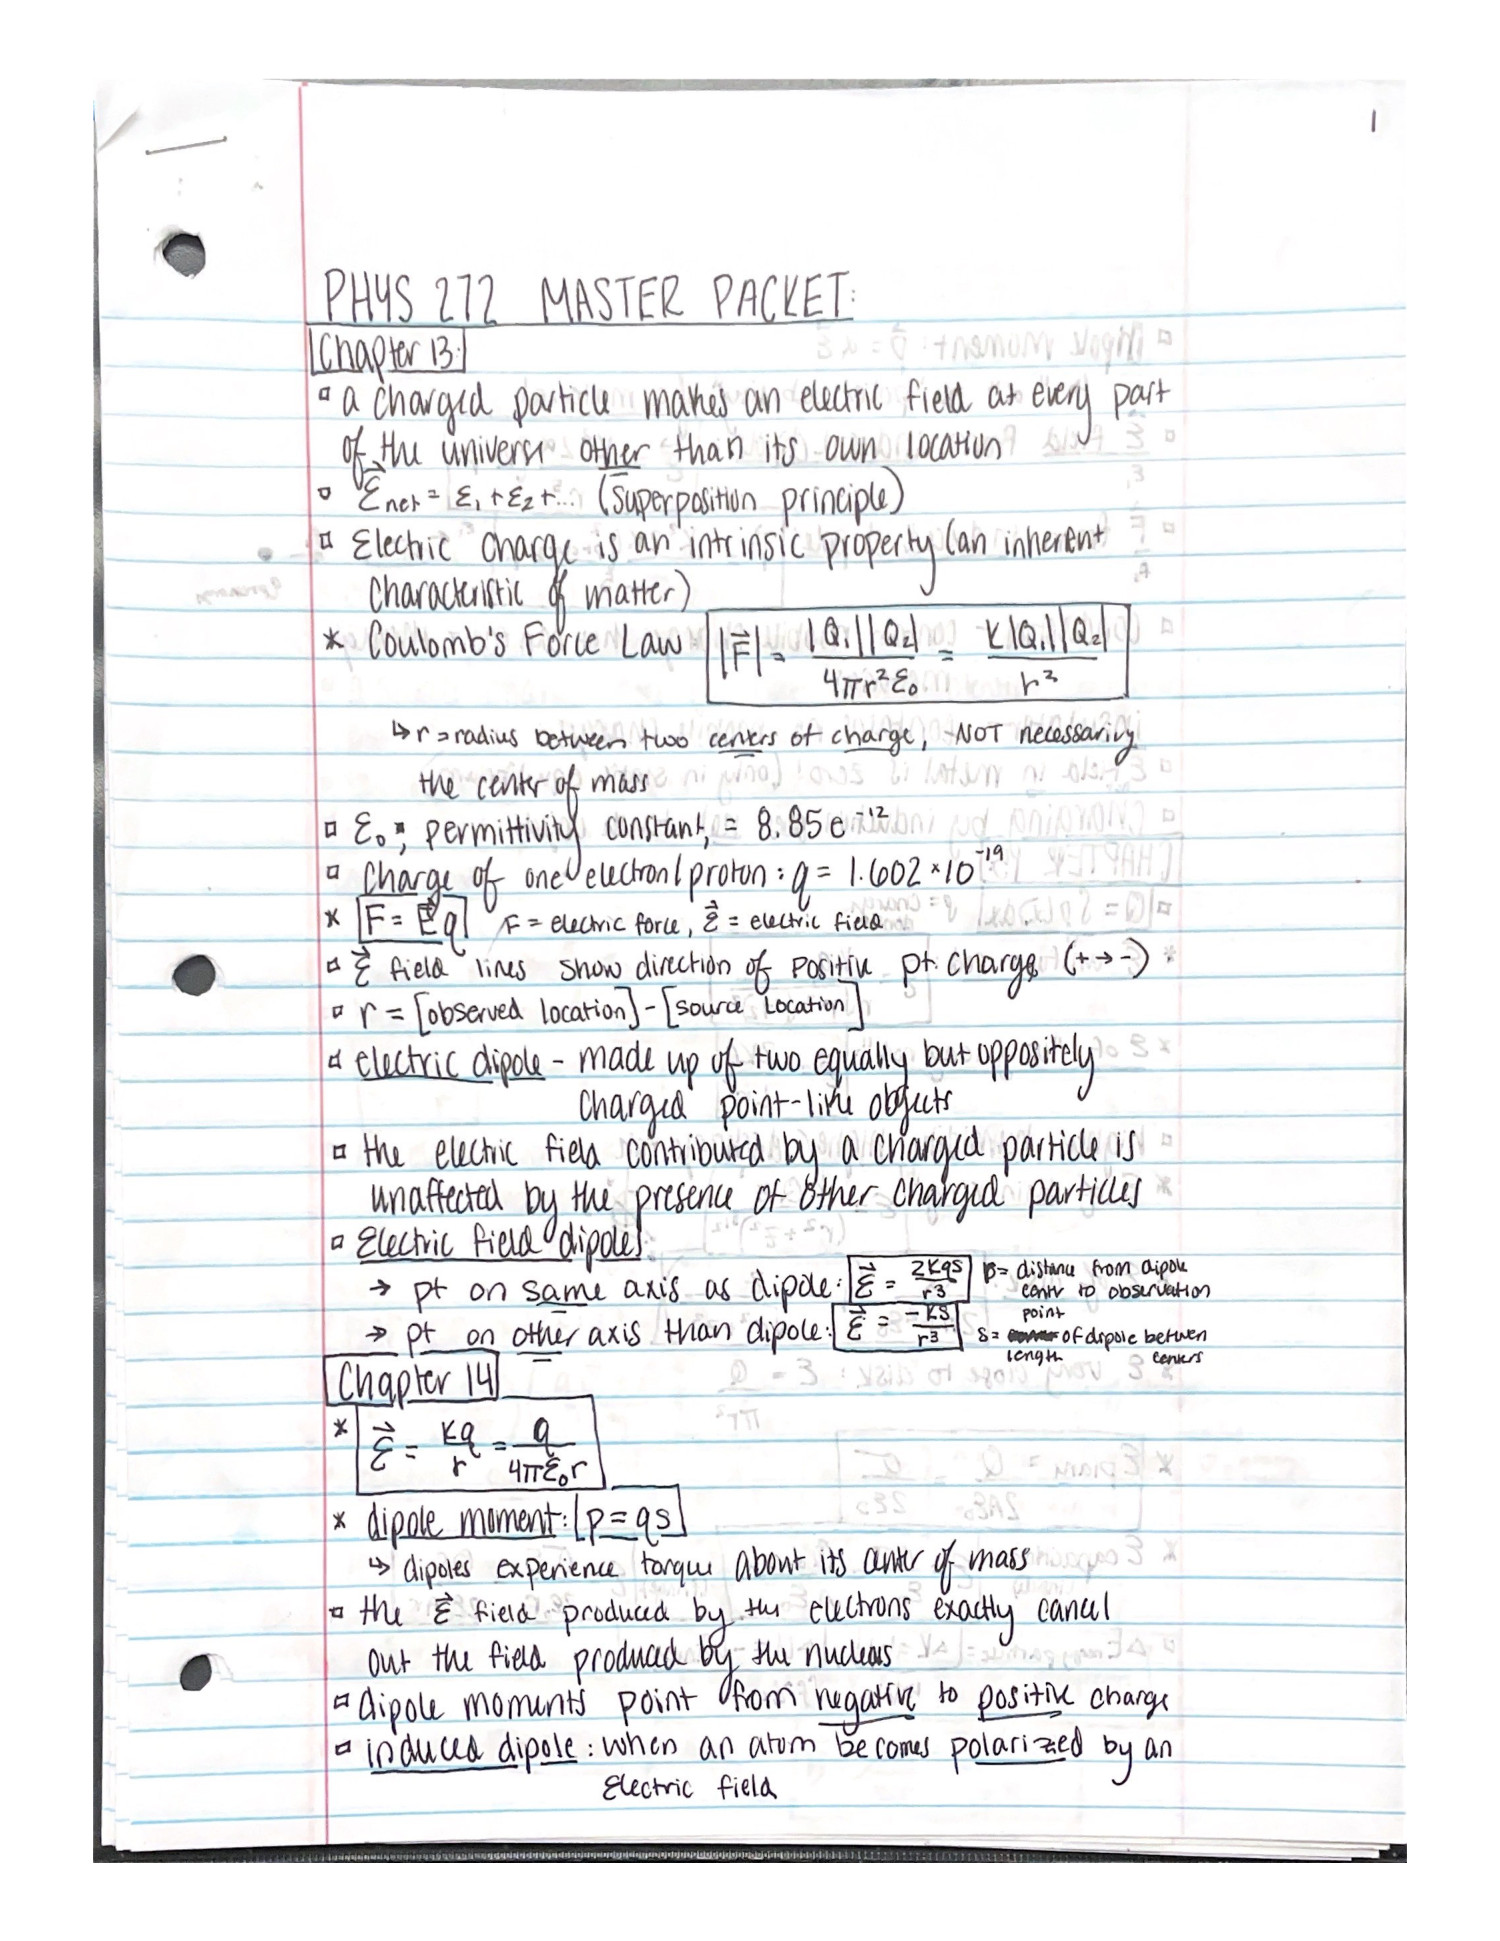 1
PHYS 272 MASTER PACKET:
Chapter 13:
▫ a charged particle makes an electric field at every part
of the universe other than its own location
▫ Ɛ⃗net = Ɛ₁ + Ɛ₂ + ... (superposition principle)
▫ Electric charge is an intrinsic property (an inherent
characteristic of matter)
* Coulomb's Force Law |F⃗| = |Q₁||Q₂| / 4πr²Ɛ₀ = K|Q₁||Q₂| / r²
↳ r = radius between two centers of charge, NOT necessarily
the center of mass
▫ Ɛ₀ = permittivity constant, = 8.85e⁻¹²
▫ charge of one electron/proton: q = 1.602 × 10⁻¹⁹
* F = E⃗q F = electric force, Ɛ⃗ = electric field
▫ Ɛ⃗ field lines show direction of positive pt. charge (+→-)
▫ r = [observed location] - [source location]
▫ electric dipole - made up of two equally but oppositely
charged point-like objects
▫ the electric field contributed by a charged particle is
unaffected by the presence of other charged particles
▫ Electric field dipoles:
→ pt on same axis as dipole: Ɛ⃗ = 2Kqs / r³ r = distance from dipole
center to observation
point
→ pt on other axis than dipole: Ɛ⃗ = -KS / r³ s = length of dipole between
centers
Chapter 14
* Ɛ⃗ = Kq / r = q / 4πƐ₀r
* dipole moment: p = qs
↳ dipoles experience torque about its center of mass
▫ the Ɛ⃗ field produced by the electrons exactly cancel
out the field produced by the nucleus
▫ dipole moments point from negative to positive charge
▫ induced dipole: when an atom becomes polarized by an
Electric field